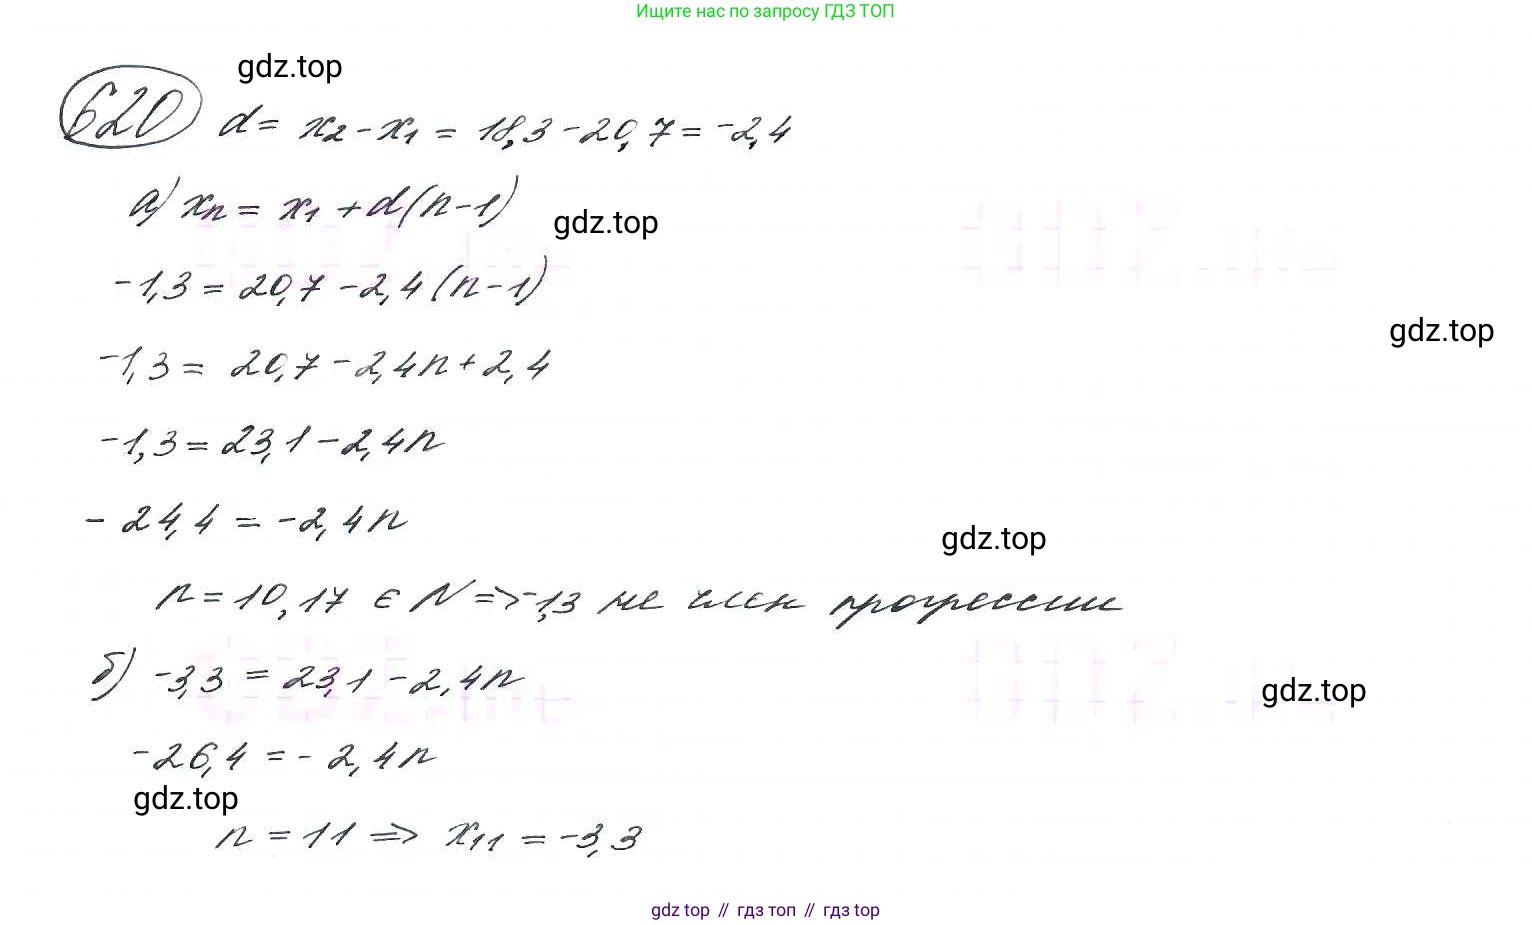 Ищите нас по запросу ГДЗ ТОП
gdz.top
620 d = x₂ - x₁ = 18,3 - 20,7 = -2,4
а) xₙ = x₁ + d(n-1)
gdz.top
-1,3 = 20,7 - 2,4(n-1)
gdz.top
-1,3 = 20,7 - 2,4n + 2,4
-1,3 = 23,1 - 2,4n
-24,4 = -2,4n
gdz.top
n = 10,17 ∈ N => -1,3 не член прогрессии
б) -3,3 = 23,1 - 2,4n
gdz.top
-26,4 = -2,4n
gdz.top
n = 11 => x₁₁ = -3,3
gdz top // гдз топ // гдз top